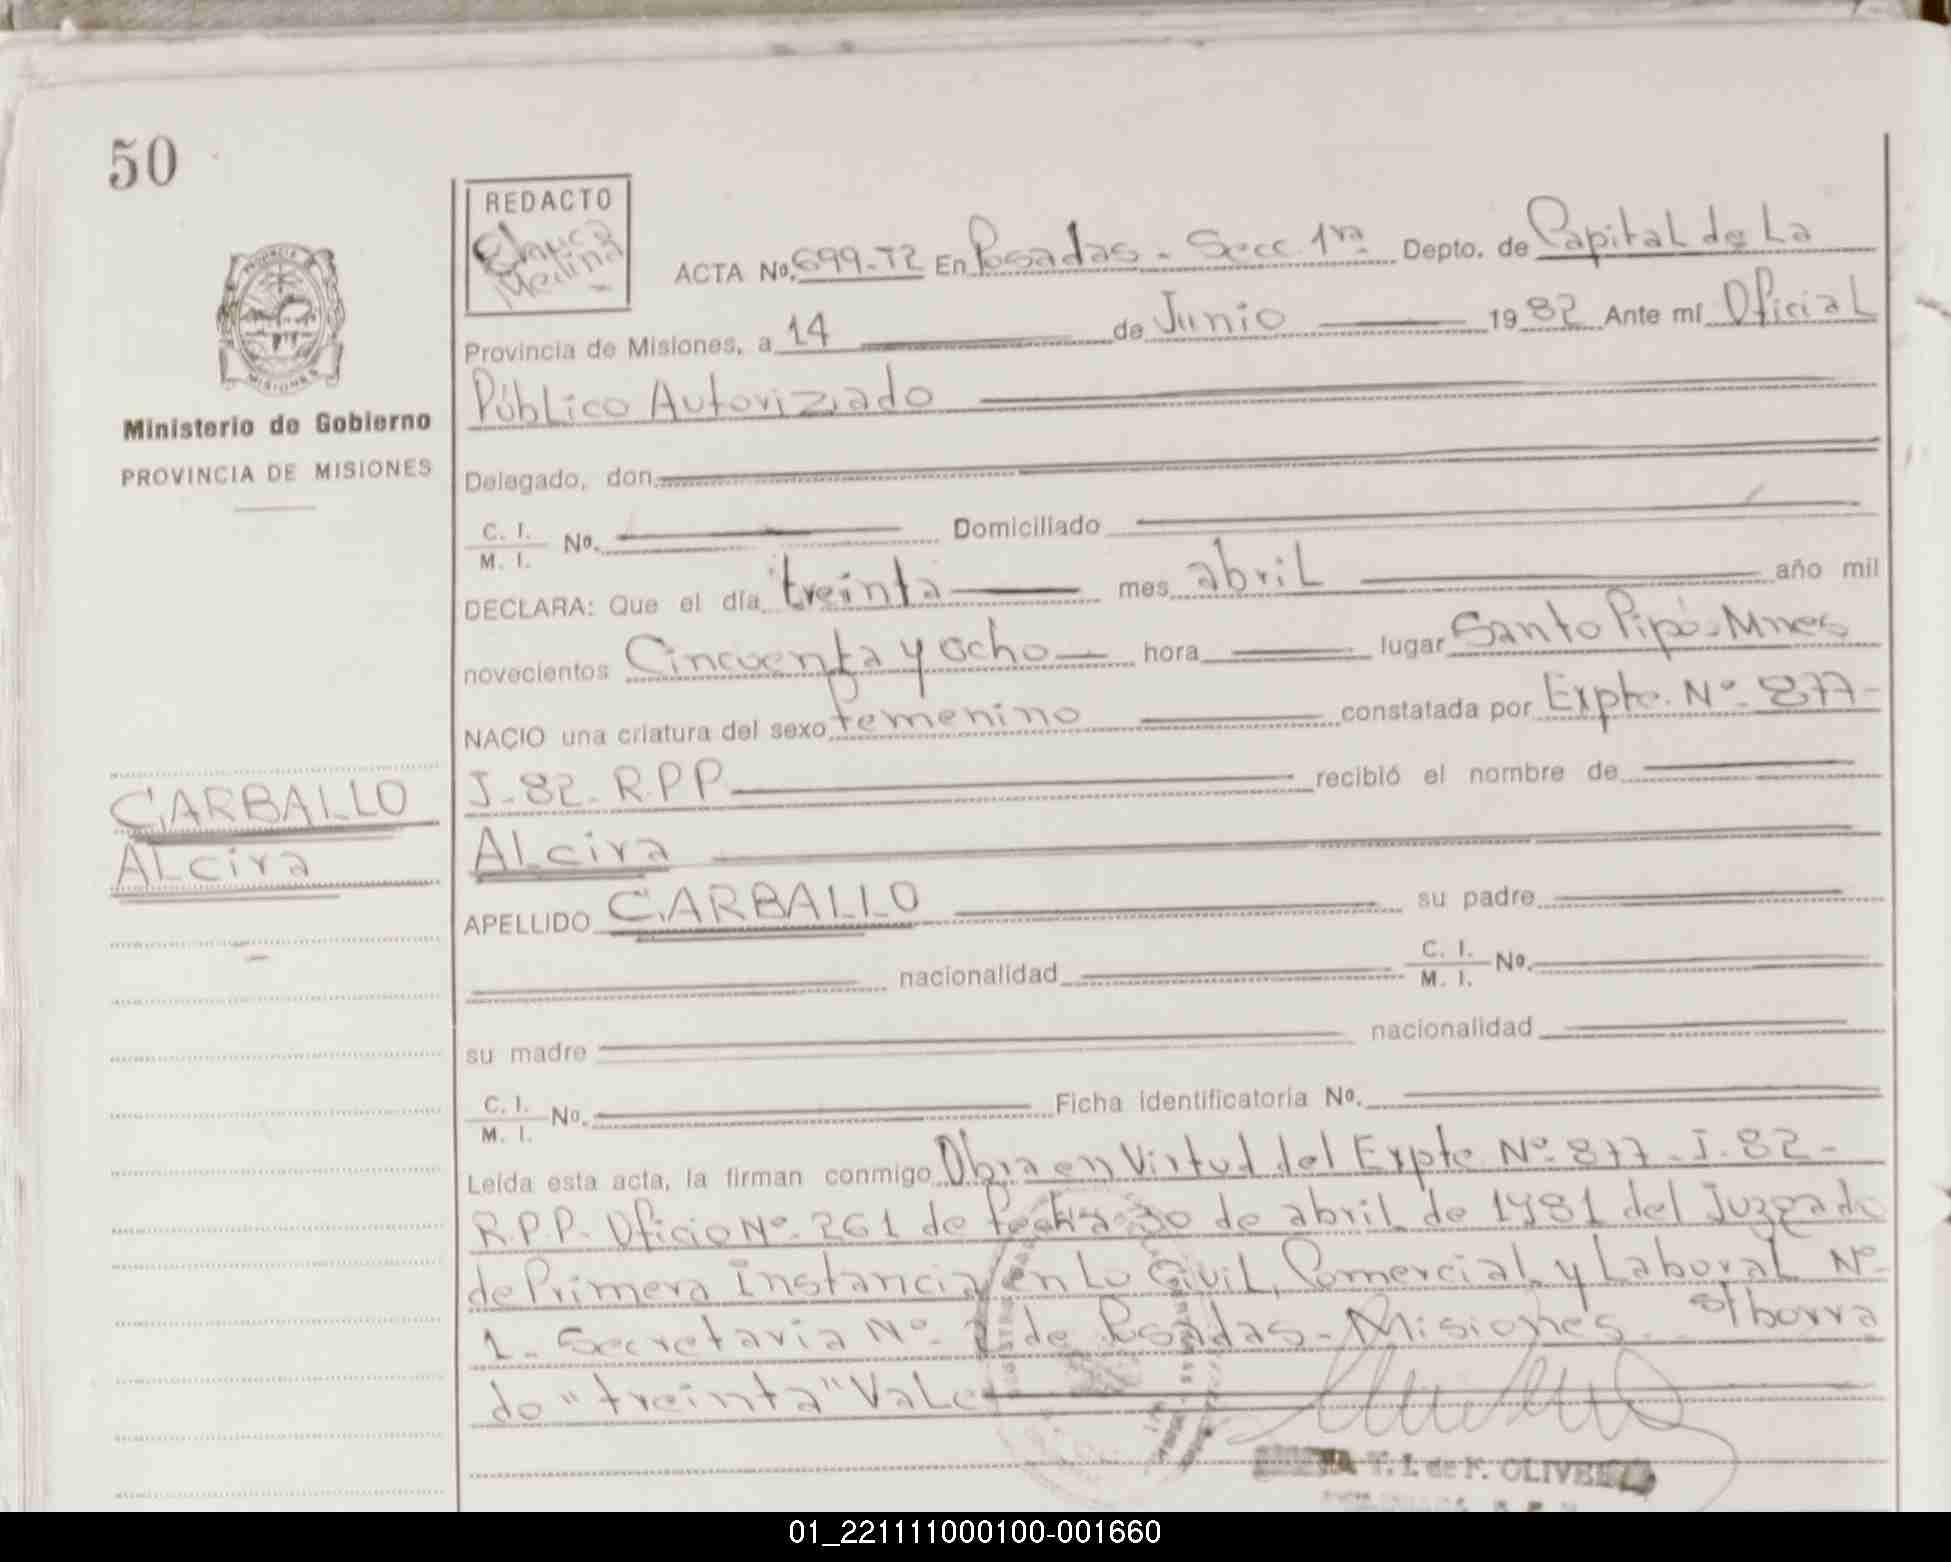 50
REDACTO
Medina
ACTA No. 699-T2 En Posadas - Secc 1ra Depto. de Capital de La
Provincia de Misiones, a 14 de Junio 1982 Ante mí Oficial
Público Autorizado
Ministerio de Gobierno
PROVINCIA DE MISIONES
Delegado, don
C. I.
M. I. No. Domiciliado
DECLARA: Que el día treinta mes abril año mil
novecientos Cincuenta y ocho hora lugar Santo Pipó - Mnes
NACIO una criatura del sexo femenino constatada por Expte. Nº 877-
J-82- R.P.P. recibió el nombre de
CARBALLO
Alcira
Alcira
APELLIDO CARBALLO su padre
nacionalidad C. I.
M. I. No.
su madre nacionalidad
C. I.
M. I. No. Ficha identificatoria No.
Leída esta acta, la firman conmigo Obra en Virtud del Expte Nº 877 - J - 82 -
R.P.P. Oficio Nº 261 de fecha 30 de abril de 1981 del Juzgado
de Primera Instancia en Lo Civil, Comercial y Laboral Nº
1 - Secretaria Nº de Posadas - Misiones s/borra
do "treinta" Vale
T. I. de F. OLIVE
01_221111000100-001660